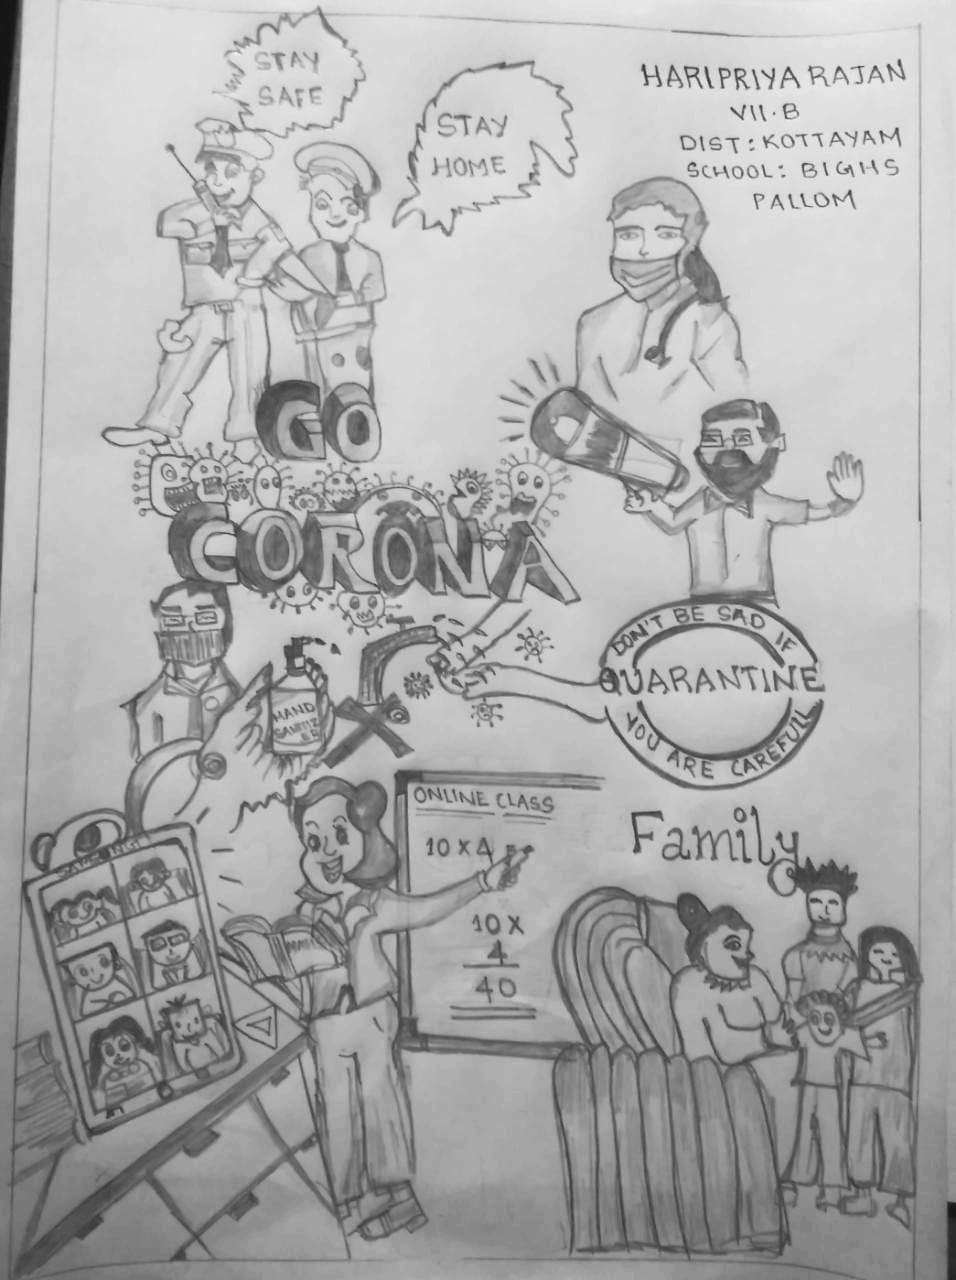 STAY
SAFE
STAY
HOME
HARIPRIYA RAJAN
VII·B
DIST: KOTTAYAM
SCHOOL: BIGHS
PALLOM
GO
CORONA
DON'T BE SAD IF
QUARANTINE
YOU ARE CAREFULL
HAND
SANITIZ
ER
ONLINE CLASS
10 x 4
10 x
4
40
SAMSUNG
Family